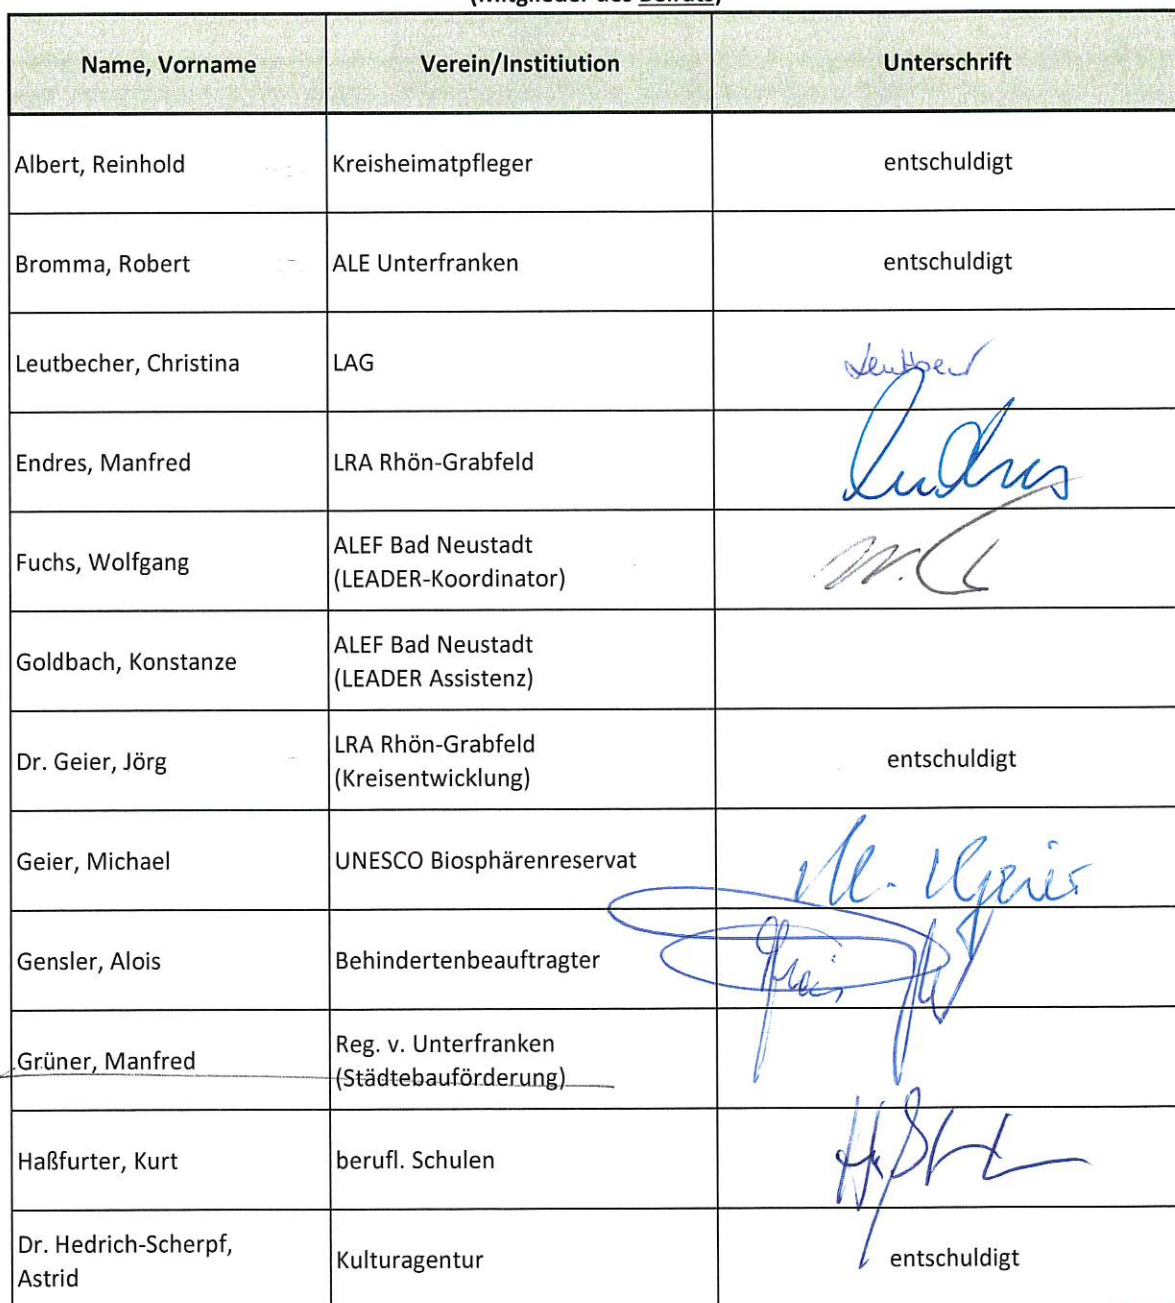 (Mitglieder des Beirats)
Name, Vorname Verein/Institiution Unterschrift
Albert, Reinhold Kreisheimatpfleger entschuldigt
Bromma, Robert ALE Unterfranken entschuldigt
Leutbecher, Christina LAG
Endres, Manfred LRA Rhön-Grabfeld Endres
Fuchs, Wolfgang ALEF Bad Neustadt
(LEADER-Koordinator)
Goldbach, Konstanze ALEF Bad Neustadt
(LEADER Assistenz)
Dr. Geier, Jörg LRA Rhön-Grabfeld
(Kreisentwicklung) entschuldigt
Geier, Michael UNESCO Biosphärenreservat M. Geier
Gensler, Alois Behindertenbeauftragter
Grüner, Manfred Reg. v. Unterfranken
(Städtebauförderung)
Haßfurter, Kurt berufl. Schulen
Dr. Hedrich-Scherpf,
Astrid Kulturagentur entschuldigt